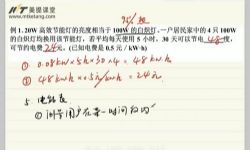 美提课堂
www.mtketang.com
95%/拉
例1.20W高效节能灯的亮度相当于100W的白炽灯,一户居民家中的4只100W
的白炽灯均换用该节能灯,若平均每天使用5小时,30天可以节电48度,
可节约电费24元。(已知电费是0.5元/kW·h)
① 0.08kw×5h×30×4=48kw·h
② 48kw·h×0.5元/kw·h=24元
5. 电能表
① 测量用户在某一时间段内